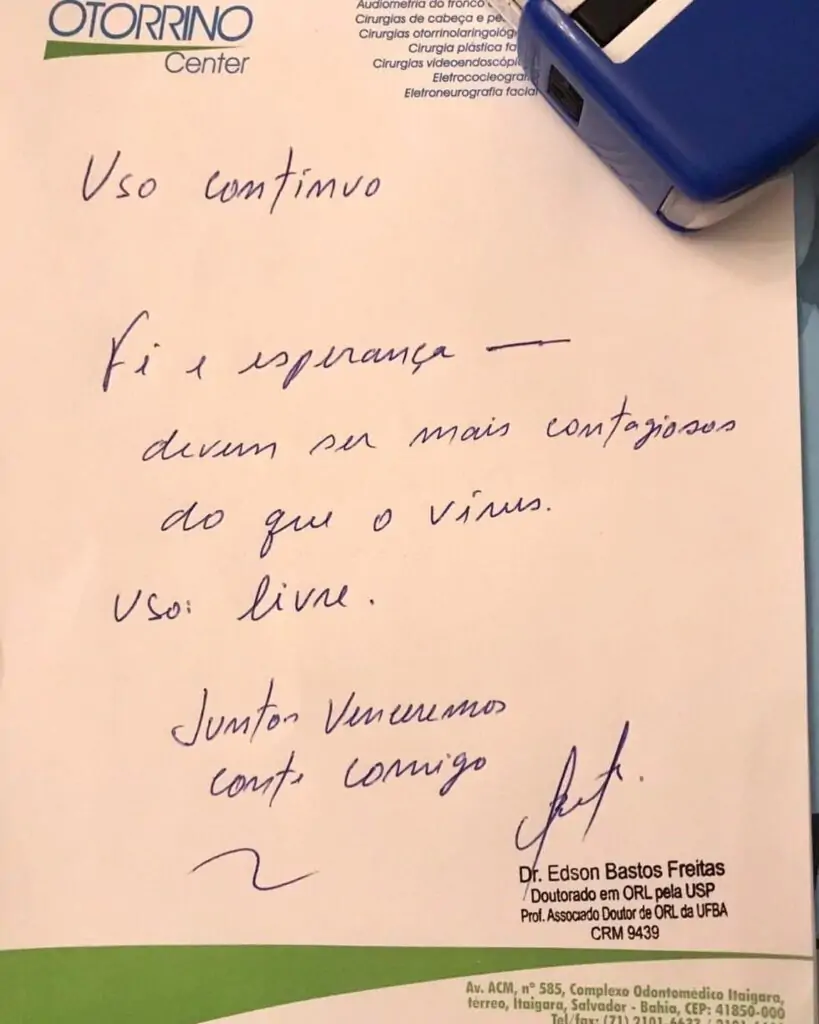 OTORRINO
Center
Audiometria do tronco
Cirurgias de cabeça e
Cirurgias
Cirurgia plástica
Cirurgias
Eletroneurografia facial
Uso contínuo
Fé e esperança —
devem ser mais contagiosos
do que o vírus.
Uso: livre.
Juntos Venceremos
conte comigo
Dr. Edson Bastos Freitas
Doutorado em ORL pela USP
Prof. Associado Doutor de ORL da UFBA
CRM 9439
Av. ACM, nº 585, Complexo Odontomédico Itaigara,
térreo, Itaigara, Salvador - Bahia, CEP: 41850-000
Tel/fax: (71) 2101-6633